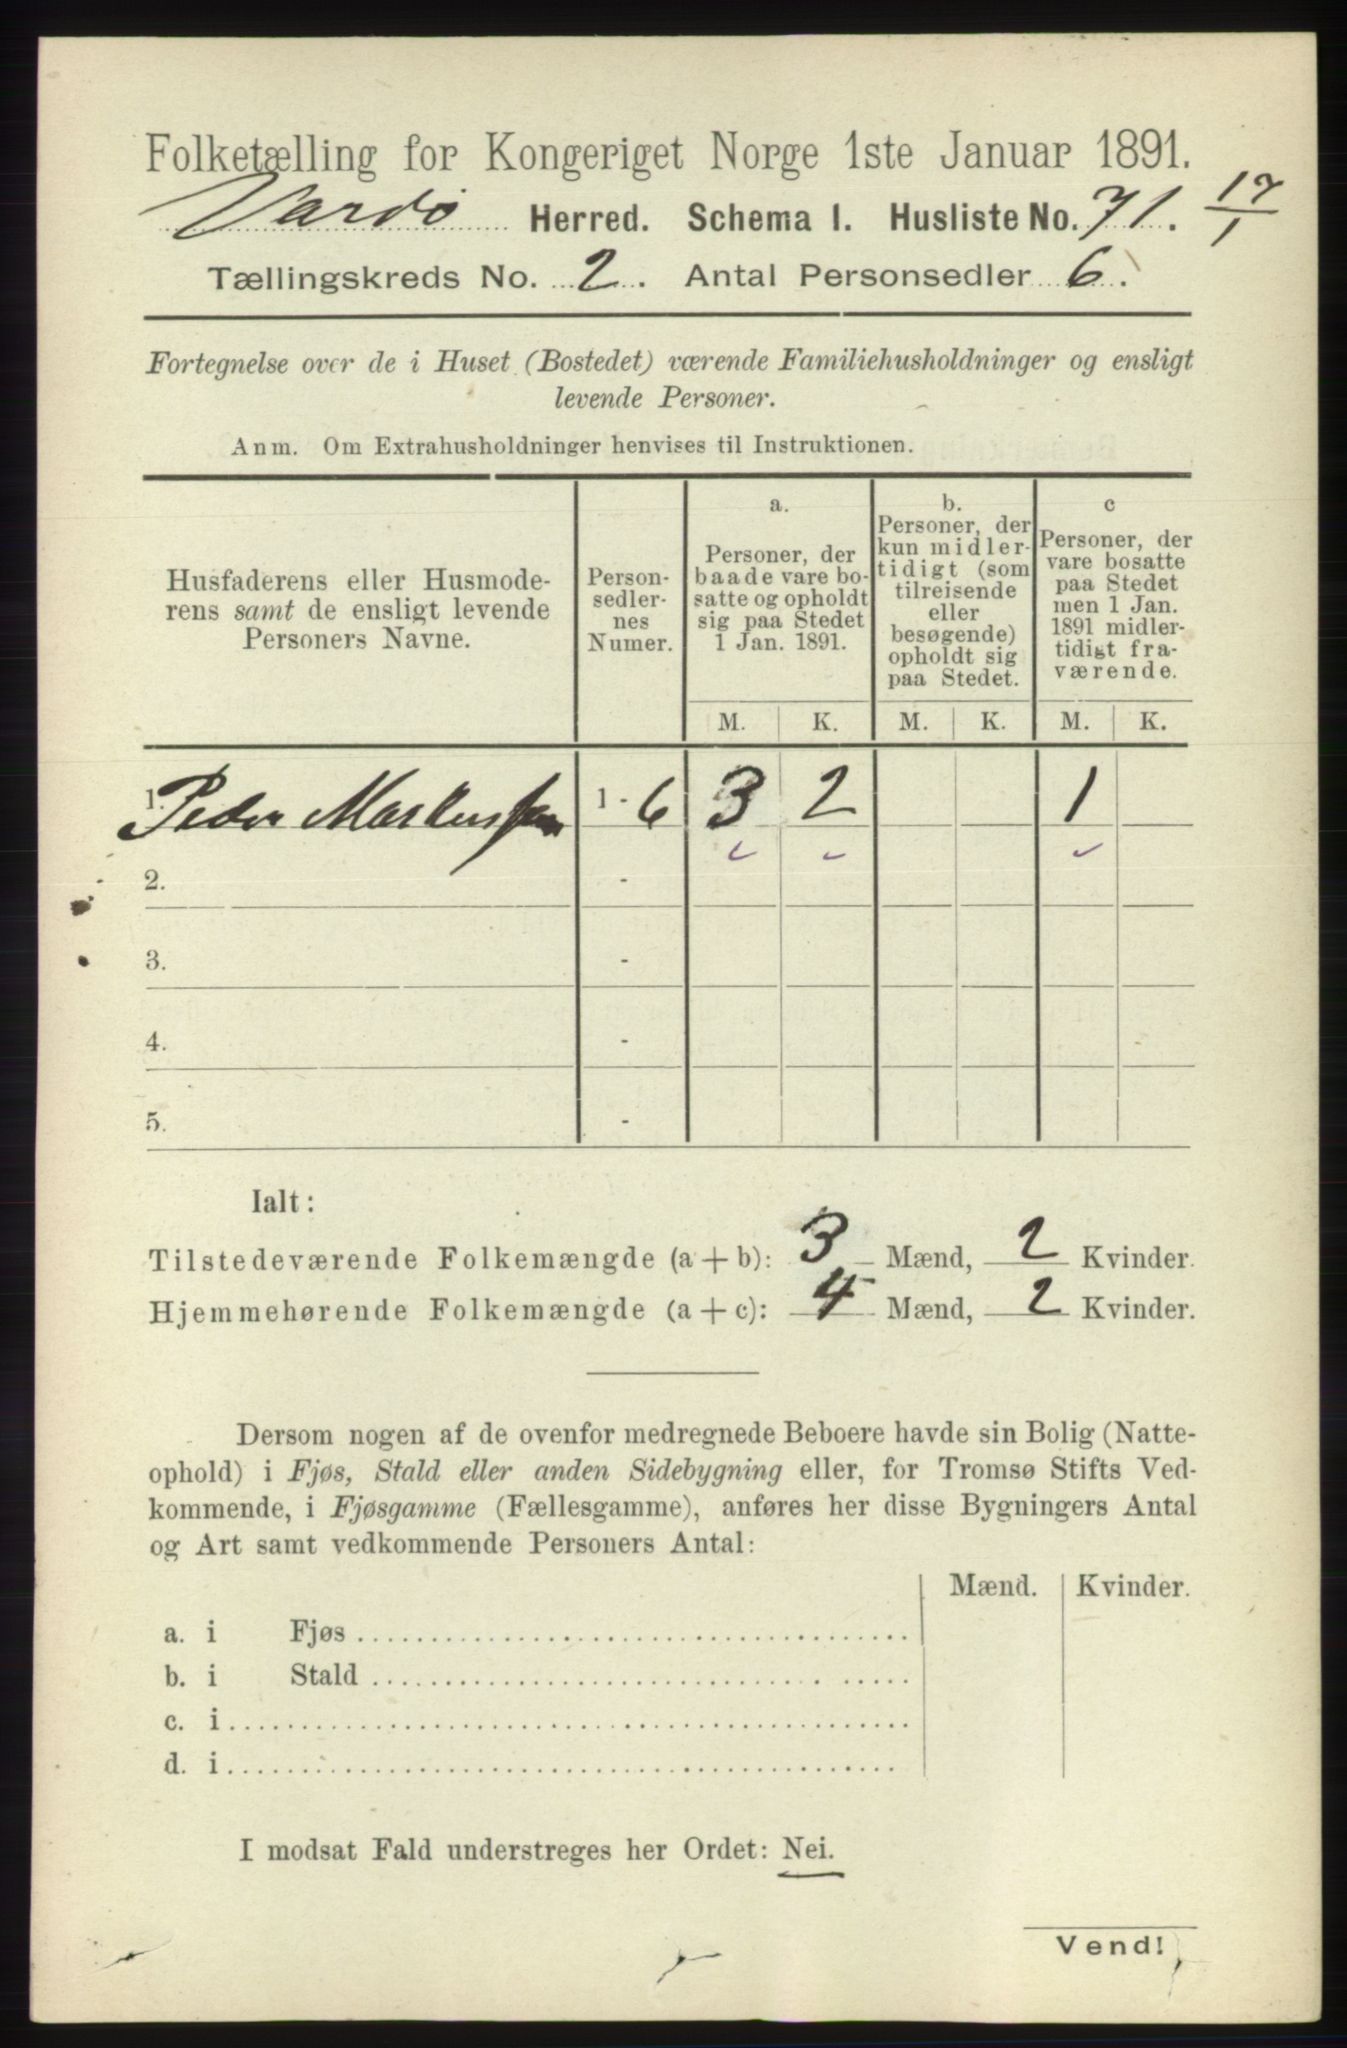 Folketælling for Kongeriget Norge 1ste Januar 1891.
Vardö Herred. Schema I. Husliste No. 71. 17/1
Tællingskreds No. 2. Antal Personsedler 6.
Fortegnelse over de i Huset (Bostedet) værende Familiehusholdninger og ensligt
levende Personer.
Anm. Om Extrahusholdninger henvises til Instruktionen.
Husfaderens eller Husmode-
rens samt de ensligt levende
Personers Navne.
Person-
sedler-
nes
Numer.
a.
Personer, der
baade vare bo-
satte og opholdt
sig paa Stedet
1 Jan. 1891.
b.
Personer, der
kun midler-
tidigt (som
tilreisende
eller
besøgende)
opholdt sig
paa Stedet.
c
Personer, der
vare bosatte
paa Stedet
men 1 Jan.
1891 midler-
tidigt fra-
værende.
M. K. M. K. M. K.
1. Peder Markussen 1 - 6 3 2 1
2. -
3. -
4. -
5. -
Ialt:
Tilstedeværende Folkemængde (a + b): 3 Mænd, 2 Kvinder.
Hjemmehørende Folkemængde (a + c): 4 Mænd, 2 Kvinder.
Dersom nogen af de ovenfor medregnede Beboere havde sin Bolig (Natte-
ophold) i Fjøs, Stald eller anden Sidebygning eller, for Tromsø Stifts Ved-
kommende, i Fjøsgamme (Fællesgamme), anføres her disse Bygningers Antal
og Art samt vedkommende Personers Antal:
Mænd. Kvinder.
a. i Fjøs
b. i Stald
c. i
d. i
I modsat Fald understreges her Ordet: Nei.
Vend!